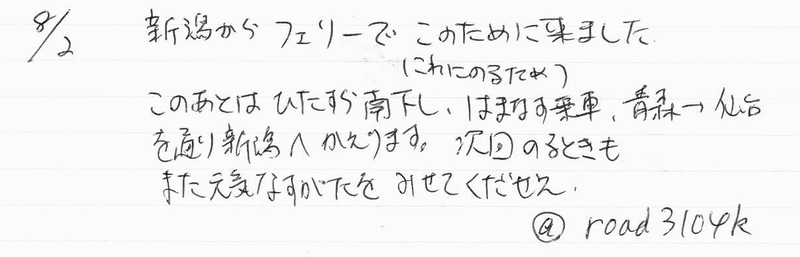 8/2 新潟から フェリーで このために来ました
(これにのるため)
このあとは ひたすら南下し、はまなす乗車、青森→仙台
を通り新潟へ かえります。次回 のるときも
また元気なすがたを みせてください.
@ road3104k